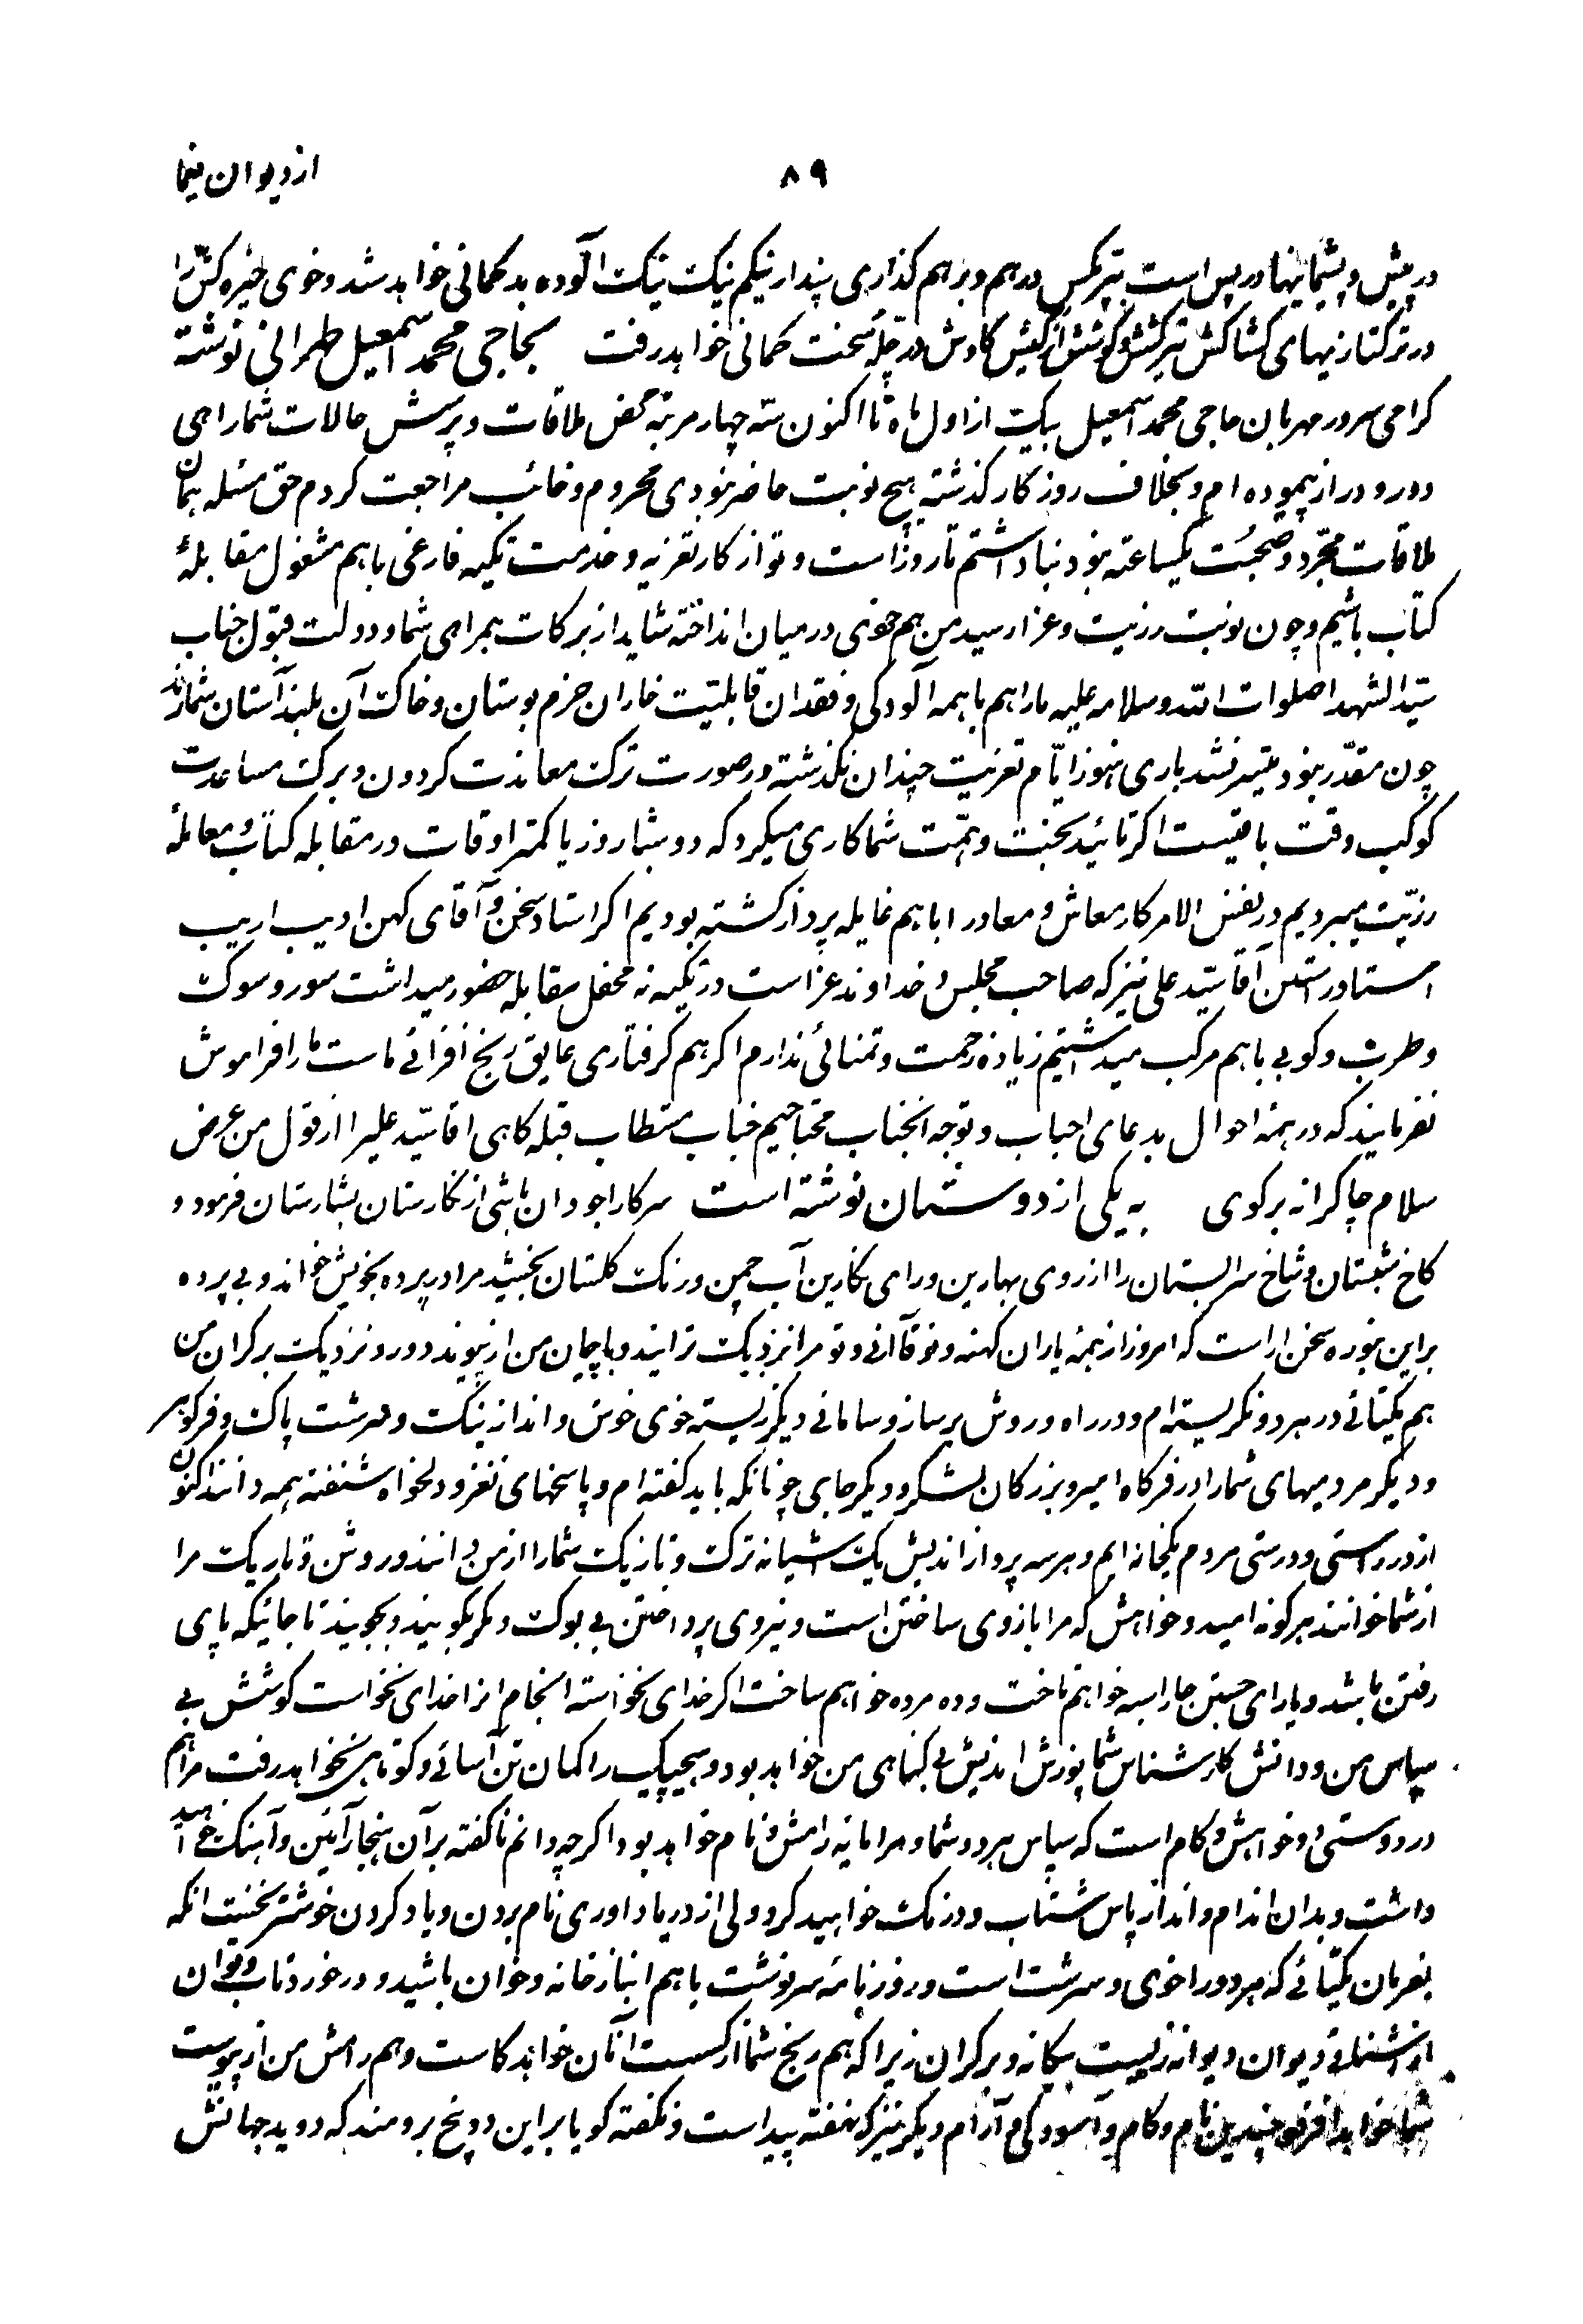 از دیوان یغما
۸۹
در پیش و پشیمانیها در پس است بتر کس درهم و برهم گذاری پندار نیکم نیک نیکت آلوده بد گمانی خواهد شد و خوی خیره کش را
در ترکتازیهای کشاکش تیرکش کوشش از کیش کاوش در چله سخت کمانی خواهد رفت بحاجی محمد اسمعیل طهرانی نوشته
گرامی سرور مهربان حاجی محمد اسمعیل بیکت از اول ماه تا اکنون سه چهار مرتبه محض ملاقات و پرسش حالات شما راهی
دور و دراز پیموده ام و بخلاف روزکار گذشته هیچ نوبت حاضر نبودی محروم و خائب مراجعت کردم حق مسئله همان
ملاقات مجرد و صحبت یکساعته نبود بنا داشتم تا روز است و تو از کار تعزیه و خدمت تکیه فارغی با هم مشغول مقابلهٔ
کتاب باشیم و چون نوبت رزیت و عزا رسید من هم خودی در میان انداخته شاید از برکات همراهی شما و دولت قبول جناب
سید الشهدا صلوات الله و سلامه علیه ما را هم با همه آلودکی و فقدان قابلیت خاران خرم بوستان و خاکت آن بلند آستان شمارند
چون مقدر نبود میسر نشد باری هنوز ایام تعزیت چندان نگذشته در صورت ترکت معاندت کردون و برکت مساعدت
کوکب وقت باقیست اگر تائید بخت و همت شما کاری میکرد که دو شبا روز یا کمتر اوقات در مقابله کتاب و معاملهٔ
رزیت میبردیم در نفس الامر کار معاش و معاد را با هم غایله پرداز کشته بودیم اگر استاد سخن و آقای کهن ادیب اریب
استاد راستین آقا سید علی نیز که صاحب مجلس و خداوند عزاست در تکیه نه محفل مقابله حضور میداشت سور و سوکت
و طرب و کوبی با هم مرکب میداشتیم زیاده زحمت و تمنائی ندارم اگر هم گرفتاری عایق رنج افزائی ماست ما را فراموش
نفرمایند که در همه احوال بدعای احباب و توجه انجناب محتاجیم جناب مستطاب قبله کاهی اقا سید علیرا از قول من عرض
سلام چاکرانه برگوی به یکی از دوستان نوشته است سرکار اجودان باشی از نکارستان بشارستان فرمود و
کاخ شبستان و شاخ سرابستان را از روی بهارین و رای نکارین آب چمن و رنکت گلستان بخشید مرا در پرده بخویش خواند و بی پرده
براین نبوره سخن اراست که امروز از همه یاران کهنه و نو فلانی و تو مرا نزدیکت تراند و با پیمان من از پیوند دور و نزدیکت بر کران من
هم یکتائی در هر دو نکریسته ام و در راه و روش بر ساز و سامانی دیگر زیسته خوی خوش و اندازه نیکت و سرشت پاکت و فر گوهر
و دیگر مردمیهای شما را در فرگاه امیر و بزرکان لشکر و دیگر جای چونانکه باید گفته ام و پاسخهای نغز و دلخواه شنفته همه دانند اکنون
از در راستی و درستی مردم یکخانه ایم و هر سه پرواز اندیش یکت اشیانه ترکت و تازیکت شما را از من دانند و روشن و تاریکت مرا
از شما خوانند هر گونه امید و خواهش که مرا بازوی ساختن است و نیروی پرداختن بی بوکت و مگر بگویند و بجویند تا جائیکه پای
رفتن باشد و یارای جستن جا را سه خواهم تاخت و ده مرده خواهم ساخت اگر خدای نخواسته انجام انرا خدای نخواست کوشش بی
سپاس من و دانش کارشناس شما پوزش اندیش بی گناهی من خواهد بود و هیچیک را گمان تن آسائی و کوتاهی نخواهد رفت مرا هم
در دوستی دو خواهش و کام است که سپاس هر دو شما و مرا مایه رامش و نام خواهد بود اگرچه دانم ناگفته بر آن هنجار آئین و آهنگ خواهید
داشت و بدان اندام و انداز پاس شتاب و درنکت خواهید کرد ولی از در یاد اوری نام بردن و یاد کردن خوشتر نخست انکه
بفرمان یکتائی که هر دو را خوی و سرشت است و روزنامه سرنوشت با هم انباز خانه و خوان باشید و در خورد تاب و توان
از شنمانی دیوان دیوانه زیست بیگانه و بر کران زیرا که هم رنج شما از کسست آنان خواهد کاست و هم رامش من از پیوست
شما خواهد افزود چندین نام و کام و آسودگی و آرام دیگر نیز که نهفته پیداست و نگفته گویا بر این دو پنج برومند که دوید جهانش